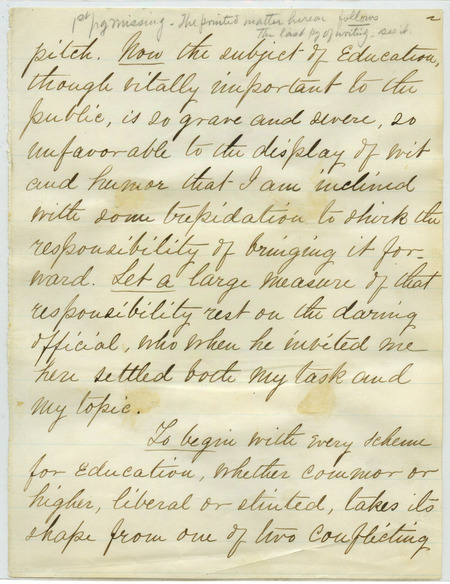 1st pg missing - The printed matter hereon follows
the last pg of writing - see it.
2
pitch. Now the subject of Education,
though vitally important to the
public, is so grave and severe, so
unfavorable to the display of wit
and humor that I am inclined
with some trepidation to shirk the
responsibility of bringing it for-
ward. Let a large measure of that
responsibility rest on the daring
official, who when he invited me
here settled both my task and
my topic.
To begin with every scheme
for Education, whether common or
higher, liberal or stinted, takes its
shape from one of two conflicting